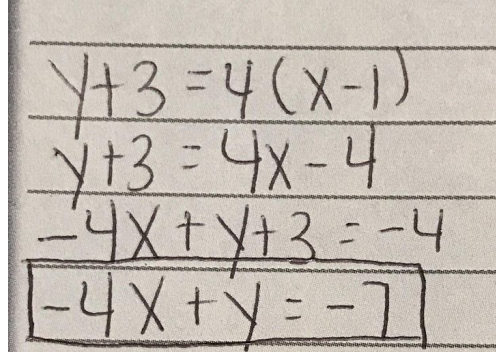 y+3 = 4(x-1)
y+3 = 4x - 4
-4x + y+3 = -4
-4x + y = -7